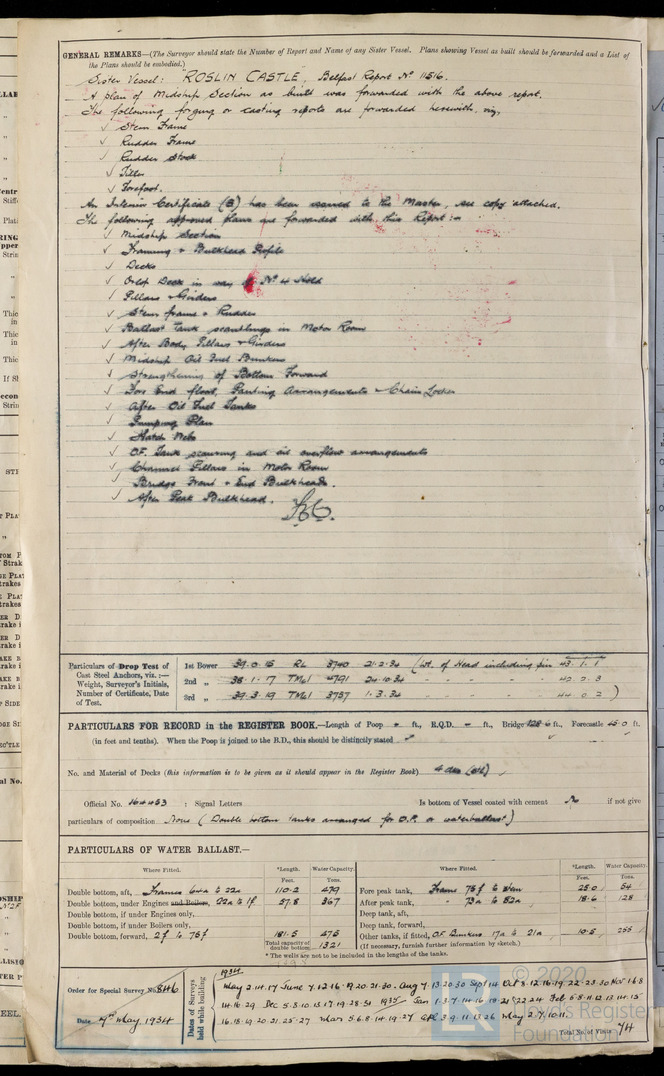 GENERAL REMARKS—(The Surveyor should state the Number of Report and Name of any Sister Vessel. Plans showing Vessel as built should be forwarded and a List of
the Plans should be embodied.)
Sister Vessel: ROSLIN CASTLE, Belfast Report No 11516.
A plan of Midship Section as built was forwarded with the above report.
The following forging or casting reports are forwarded herewith, viz,
✓ Stern Frame
✓ Rudder Frame
✓ Rudder Stock
✓ Tiller
✓ Forefoot.
An Interim Certificate (B) has been issued to the Master, see copy attached.
The following approved plans are forwarded with this Report:-
✓ Midship Section
✓ Framing & Bulkhead Profile
✓ Decks
✓ Orlop Deck in way of No 4 Hold
✓ Pillars & Girders
✓ Stern frame & Rudder
✓ Ballast Tank scantlings in Motor Room
✓ After Body, Pillars & Girders
✓ Midship Oil Fuel Bunkers
✓ Strengthening of Bottom Forward
✓ Fore End float, Panting Arrangements & Chain Locker
✓ After Oil Fuel Tanks
✓ Pumping Plan
✓ Hatch Webs
✓ OF. Tank and oil overflow arrangements
✓ Channel Pillars in Motor Room
✓ Bridge Front & End Bulkheads.
✓ After Peak Bulkhead.
Particulars of Drop Test of
Cast Steel Anchors, viz.:—
Weight, Surveyor's Initials,
Number of Certificate, Date
of Test.
1st Bower 39.0.15 RL 3740 21.2.34 (Wt. of Head including pin 43.1.1
2nd „ 38.1.17 4791 24.10.34 „ „ „ „ 42.2.3
3rd „ 39.3.19 3757 1.3.34 „ „ „ „ 44.0.2)
PARTICULARS FOR RECORD in the REGISTER BOOK.—Length of Poop - ft., R.Q.D. - ft., Bridge 128.6 ft., Forecastle 45.0 ft.
(in feet and tenths). When the Poop is joined to the B.D., this should be distinctly stated
No. and Material of Decks (this information is to be given as it should appear in the Register Book)
Official No. 164453 : Signal Letters Is bottom of Vessel coated with cement No if not give
particulars of composition None (Double bottom tanks arranged for O.F. or waterballast)
PARTICULARS OF WATER BALLAST.—
Where Fitted. *Length. Water Capacity. Where Fitted. *Length. Water Capacity.
Feet. Tons. Feet. Tons.
Double bottom, aft, Frames 64a to 22a 110.2 479 Fore peak tank, Frame 75f to stem 25.0 54
Double bottom, under Engines and Boilers, 22a to 1f 57.8 367 After peak tank, „ 73a to 82a 18.6 128
Double bottom, if under Engines only, Deep tank, aft,
Double bottom, if under Boilers only, Deep tank, forward,
Double bottom, forward, 2f to 75f 181.5 475 Other tanks, if fitted, O.F. Bunkers 17a to 21a 10.5 255
Total capacity of double bottom 1321 (If necessary, furnish further information by sketch.)
* The wells are not to be included in the lengths of the tanks.
Order for Special Survey No. 846
Date 7th May, 1934
Dates of Surveys held while building
1934
May 2.14.17 June 7.12.16. 19.20.21.30. Aug 7.13.20.30 Sept 14 Oct 8.12.16.19.22.23.30 Nov 1.6.8
14.16.29 Dec 5.5.10.13.17.19.28.31 1935 Jan 1.3.7.14.16.19.21.22.24 Feb 5.8.11.12.13.14.15
16.18.19.20.21.25.27 Mar 5.6.8.14.19.27 Apl 3.9.11.13.26 May 2.7.10.11.
Total No. of Visits 74
© 2020
Lloyd's Register
Foundation
LR